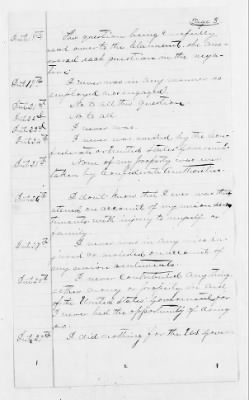 Page 3
Int. 18th The questions being carefully
read over to the Claimant, she ans-
wered each question in the nega-
tive.
Int 19th I never was in any manner so
employed or engaged.
Int 21st No to all this question.
Int 22d No to all.
Int 23d I never was.
Int 24th I never was by the
or United States Government.
Int 25th None of my property ever was
taken by Confederate Authorities.
Int 26th I don't know that I ever was thr-
eatened on account of my union sen-
timents with injury to myself or
family.
Int 27th I never was in any way in-
jured or molested on account of
my union sentiments.
Int 28th I never Contributed anything
either money or property in aid
of the United States Government, for
I never had the opportunity of doing
so.
Int 29th I did nothing for the US Govern